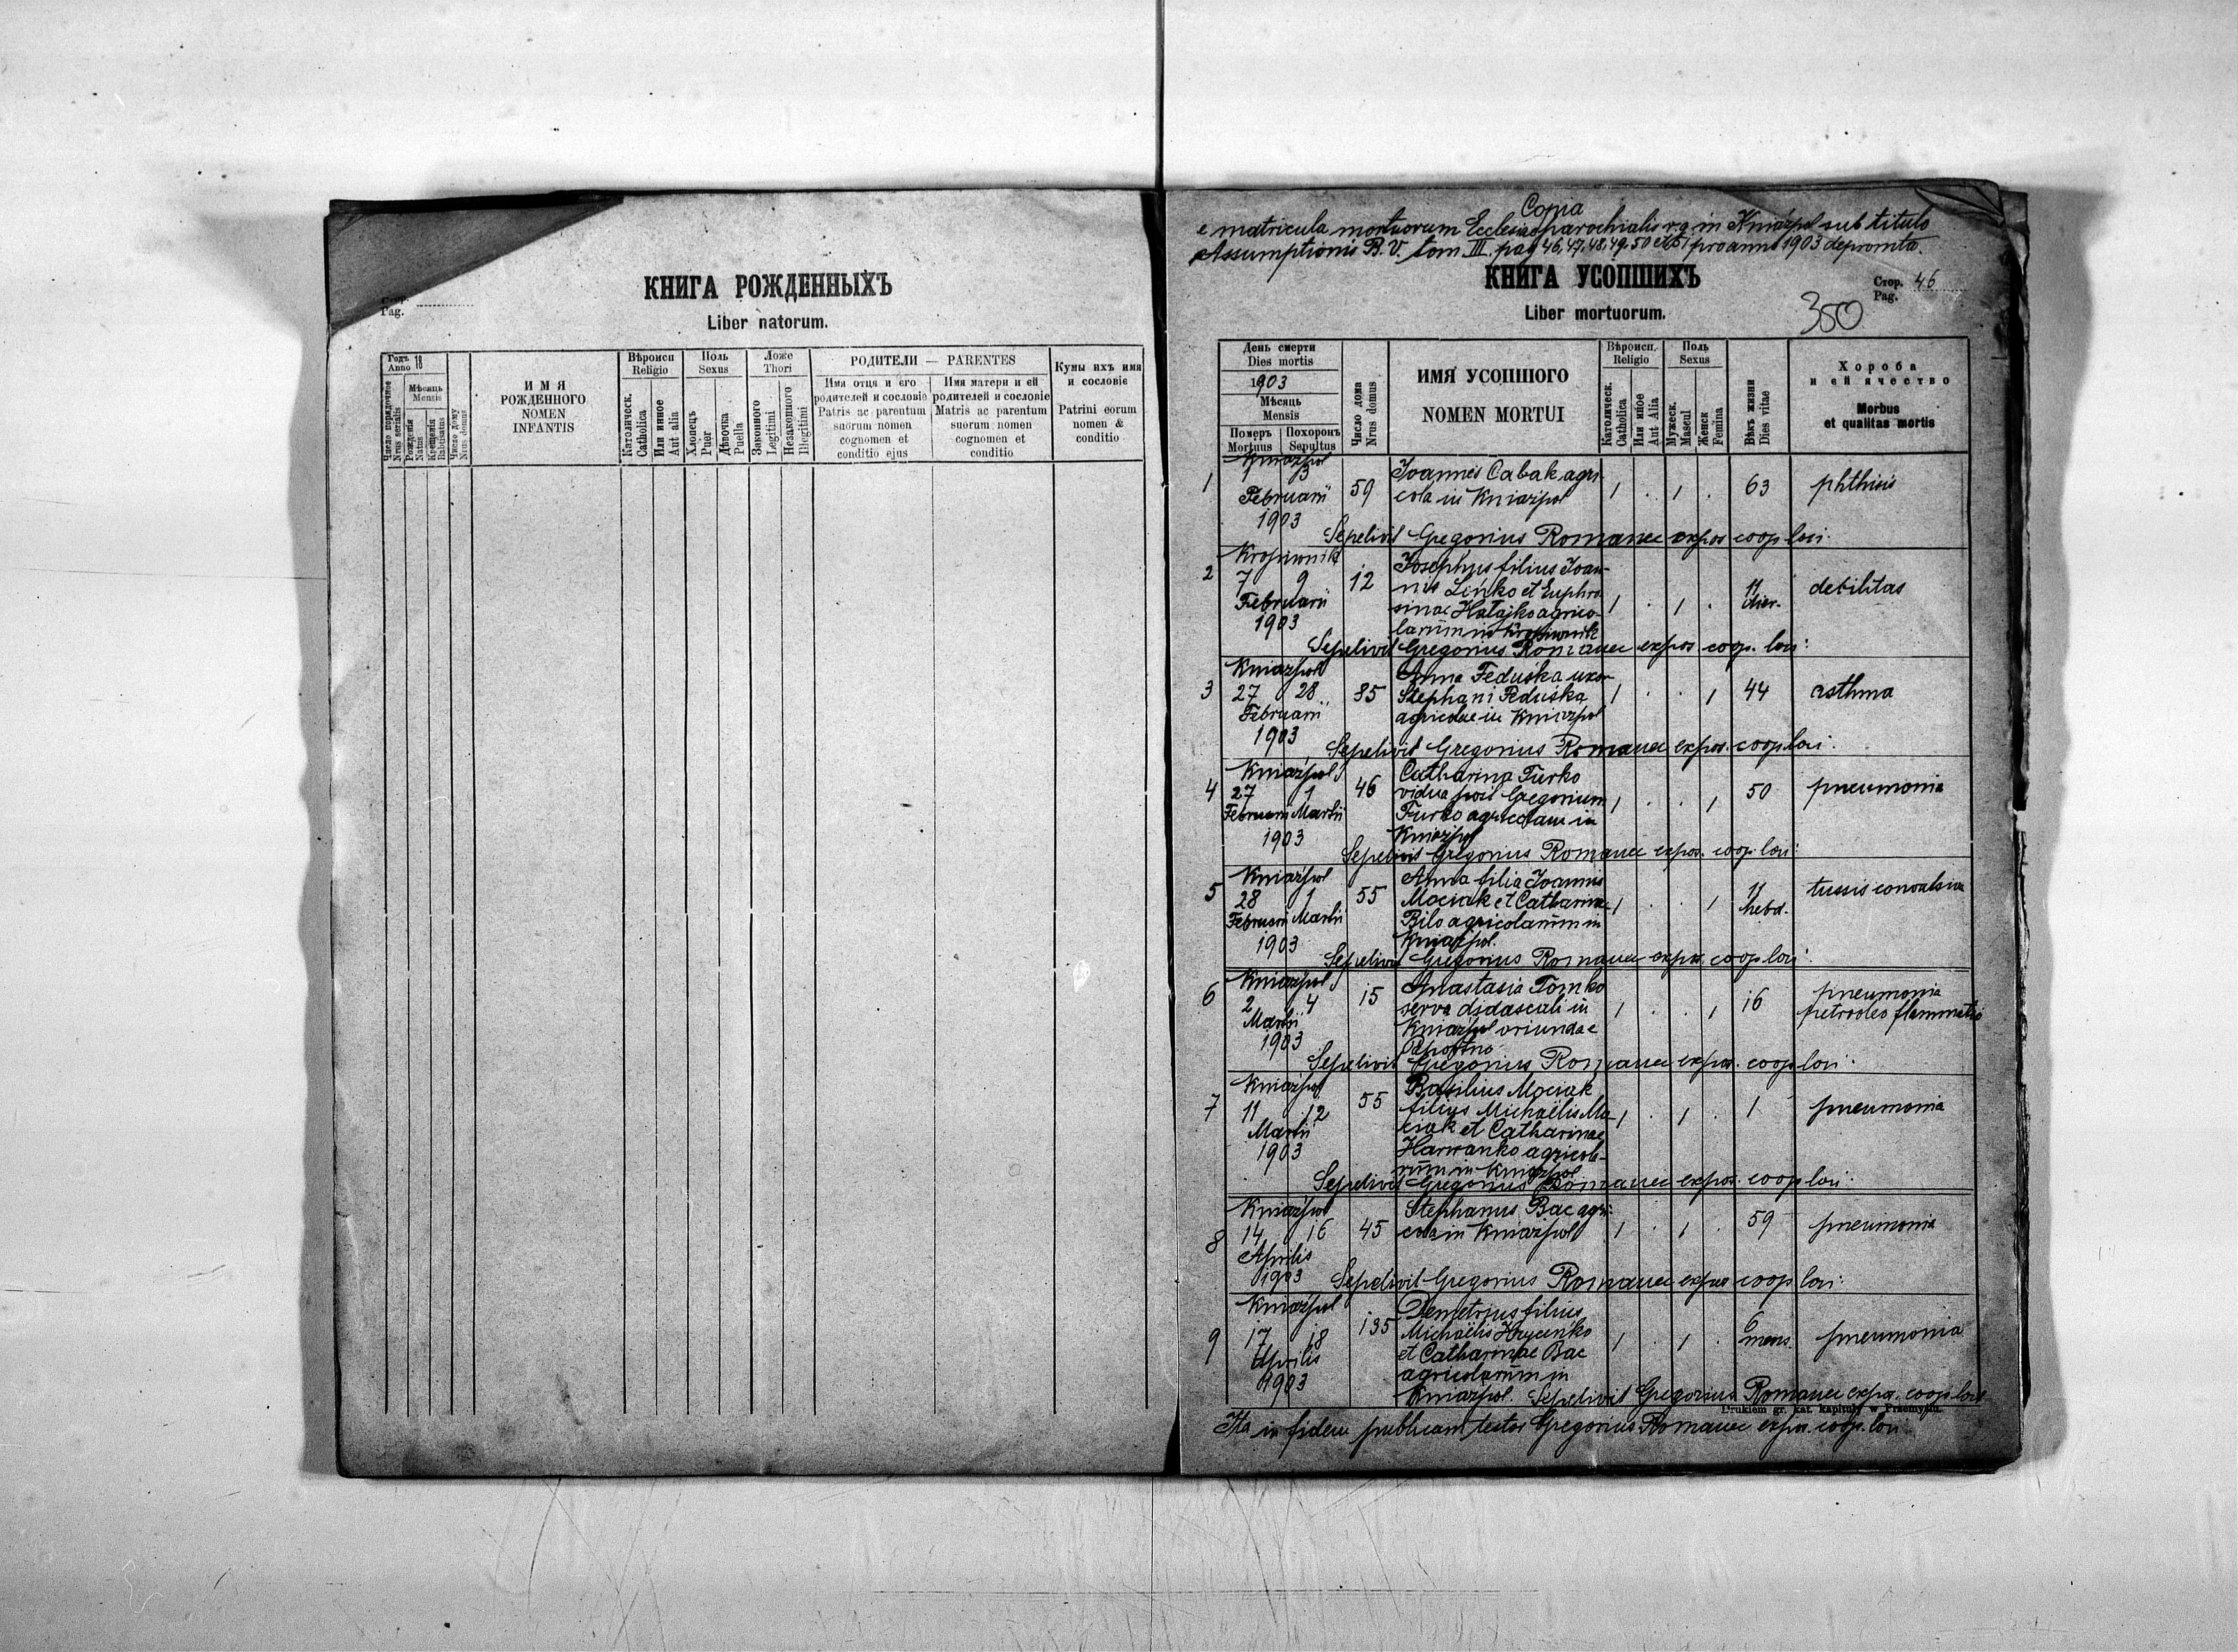 КНИГА РОЖДЕННЫХЪ
Стор.
Pag.
Liber natorum.
Годъ 18
Anno
Мѣсяць
Mensis
Число порядочное
Nrus serialis
Рожденія
Natus
Крещенія
Babtisatus
Число дому
Nrus domus
ИМЯ
РОЖДЕННОГО
NOMEN
INFANTIS
Вѣроисп
Religio
Католическ.
Catholica
Или инное
Aut alia
Поль
Sexus
Хлопецъ
Puer
Дѣвочка
Puella
Ложе
Thori
Законного
Legitimi
Незаконного
Illegitimi
РОДИТЕЛИ — PARENTES
Имя отця и его
родителей и сословіе
Patris ac parentum
suorum nomen
cognomen et
conditio ejus
Имя матери и ей
родителей и сословіе
Matris ac parentum
suorum nomen
cognomen et
conditio
Кумы ихъ имя
и сословіе
Patrini eorum
nomen &
conditio
Copia
e matricula mortuorum Ecclesiae parochialis r.g. in Kniaźpol sub titulo
Assumptionis B. V. tom III. pag 46, 47, 48, 49, 50 et 51 pro anno 1903 depromta.
КНИГА УСОПШИХЪ
Стор. 46
Pag.
Liber mortuorum.
350
День смерти
Dies mortis
1903
Мѣсяць
Mensis
Померъ
Mortuus
Похоронъ
Sepultus
Число дома
Nrus domus
ИМЯ УСОПШОГО
NOMEN MORTUI
Вѣроисп.
Religio
Католическ.
Catholica
Или иное
Aut Alia
Поль
Sexus
Мужеск.
Mascul
Женск
Femina
Вѣкъ жизни
Dies vitae
Хороба
и ей ячество
Morbus
et qualitas mortis
Kniaźpol
1 3 59 Joannes Cabak agri- 1 . 1 . 63 phthisis
Februarii cola in Kniaźpol
1903
Sepelivit Gregorius Romanec expos coop. lori:
Kropiwnik
2 7 9 12 Josephus filius Joan- 1 . 1 . 11 dier. debilitas
Februarii nis Lenko et Euphro-
1903 sinae Hatajko agrico-
larum in Kropiwnik
Sepelivit Gregorius Romanec expos coop. lori:
Kniaźpol
3 27 28 85 Anna Feduśka uxor 1 . . 1 44 asthma
Februarii Stephani Feduśka
1903 agricolae in Kniaźpol
Sepelivit Gregorius Romanec expos. coop lori:
Kniaźpol
4 27 1 46 Catharina Turko 1 . . 1 50 pneumonia
Februarii Martii vidua post Gregorium
1903 Turko agricolam in
Kniaźpol
Sepelivit Gregorius Romanec expos. coop lori:
Kniaźpol
5 28 1 55 Anna filia Joannis 1 . . 1 11 hebd. tussis convulsiva
Februarii Martii Mociak et Catharinae
1903 Bilo agricolarum in
Kniaźpol.
Sepelivit Gregorius Romanec expos. coop lori:
Kniaźpol
6 2 4 15 Anastasia Tomko 1 . . 1 16 pneumonia
Martii serva didascali in petroleo flammatio
1903 Kniaźpol oriunda e
Sepelivit Gregorius Romanec expos. coop lori:
Kniaźpol
7 11 12 55 Basilius Mociak 1 . 1 . 1 pneumonia
Martii filius Michaëlis Mo-
1903 ciak et Catharinae
Hawranko agricola-
rum in Kniaźpol
Sepelivit Gregorius Romanec expos. coop lori:
Kniaźpol
8 14 16 45 Stephanus Bac agri- 1 . 1 . 59 pneumonia
Aprilis cola in Kniaźpol
1903
Sepelivit Gregorius Romanec expos coop lori:
Kniaźpol
9 17 18 135 Demetrius filius 1 . 1 . 6 mens. pneumonia
Aprilis Michaëlis Hrycenko
1903 et Catharinae Bac
agricolarum in
Kniaźpol. Sepelivit Gregorius Romanec expos. coop lori
Drukiem gr. kat. kapituły w Przemyślu.
Ita in fidem publicam testor Gregorius Romanec expos. coop. lori: